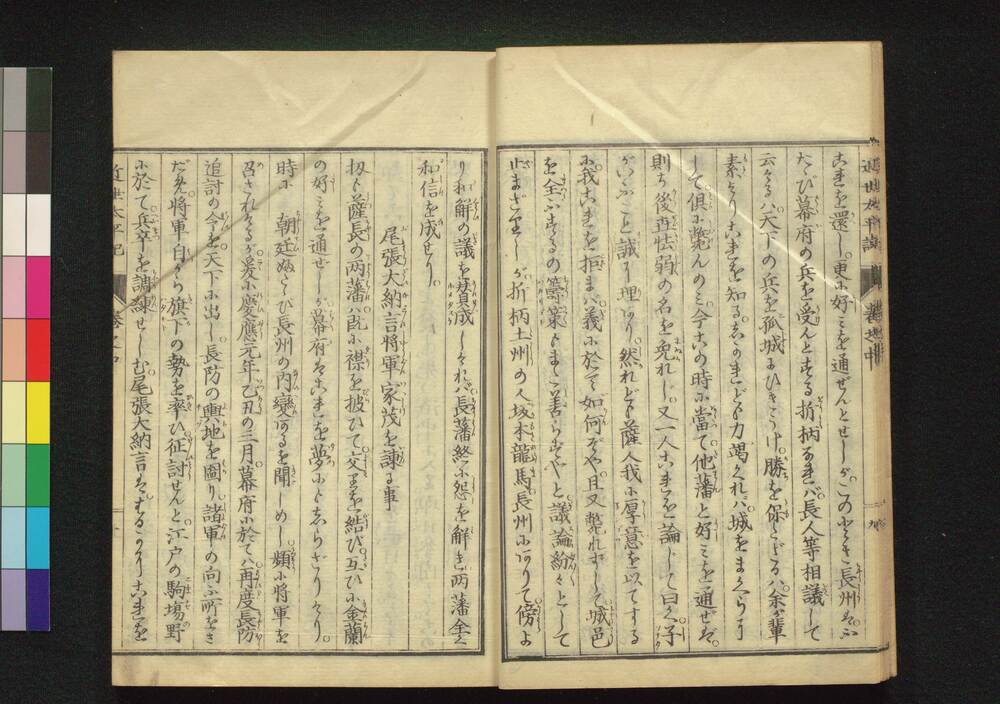 これを還し。更に好みを通ぜんとせしが。このとき長州は。ふ
たゝび幕府の兵を受んとする折柄なれば。長人等相議して
云けるは。天下の兵を孤城にひきうけ。勝を保しがたきは。余が輩
素よりこれを知る。しかれども力竭くれば。城をまくらに
して。俱に斃んのみ。今この時に當て。他藩と好みを通せば。
則ち後世怯弱の名を免れじ。又一人これを論じて曰く。子
がいふこと誠に理あり。然れども薩人我に厚意を以てする
に。我これを拒まば。義に於て如何ぞや。且又斃れずして。城邑
を全ふするの籌策もまた善らずやと。議論紛々として
止まざりしが。折柄土州の人坂本龍馬長州にありて。傍よ
り和解の議を賛成しければ。長藩終に怨を解き。両藩全く
和信を成せり。
尾張大納言将軍家茂を諫る事
扨も薩長の両藩は。既に襟を披ひて。交りを結び。互ひに金蘭
の好みを通ぜしが。幕府はこれを夢にもしらざりけり。
時に 朝廷ふたゝび長州の内變あるを聞しめし。頻に将軍を
召されけるが。爰に慶應元年乙丑の三月。幕府に於ては。再度長防
追討の令を。天下に出し。長防の輿地を圖り。諸軍の向ふ所をさ
だめ。将軍自から旗下の勢を率ひ。征討せんと。江戸の駒塲野
に於て。兵卒を調練せしむ。尾張大納言ははるかにこれを
近世太平記
巻之中
九